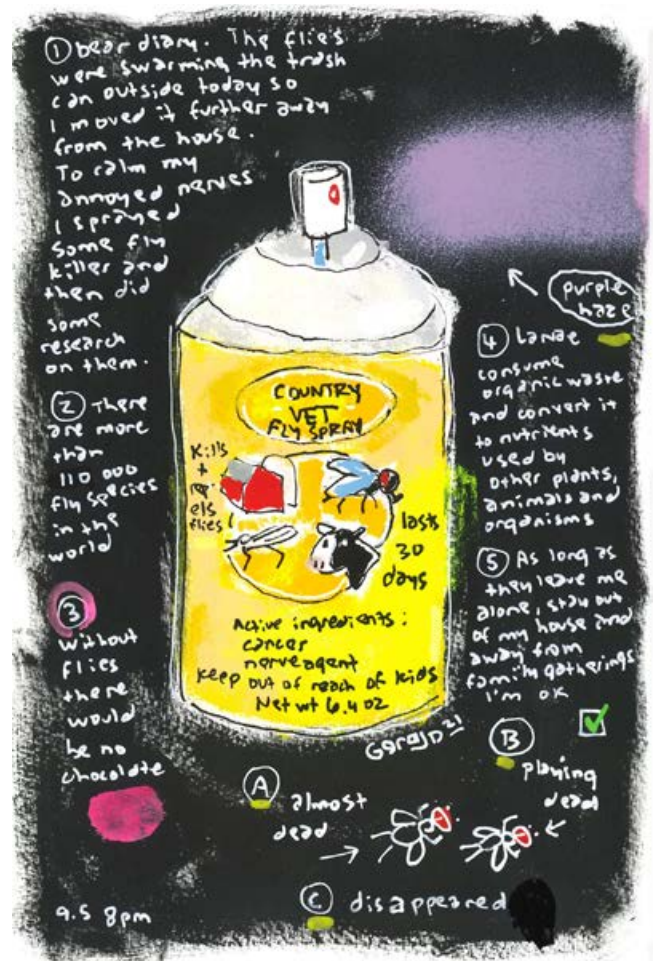 ① bear diary. The flies
were swarming the trash
can outside today so
I moved it further away
from the house.
To calm my
annoyed nerves
I sprayed
some fly
killer and
then did
some
research
on them.
② There
are more
than
110 000
fly species
in the
world
③
without
flies
there
would
be no
chocolate
9.5 8pm
COUNTRY
VET
FLY SPRAY
Kills
+
rep
els
flies
lasts
30
days
Active ingredients:
cancer
nerve agent
Keep out of reach of kids
Net wt 6.4 oz
purple
haze
④ Larvae
consume
organic waste
and convert it
to nutrients
used by
other plants,
animals and
organisms
⑤ As long as
they leave me
alone, stay out
of my house and
away from
family gatherings
I'm OK
Ⓐ
almost
dead
Ⓑ
playing
dead
Ⓒ disappeared